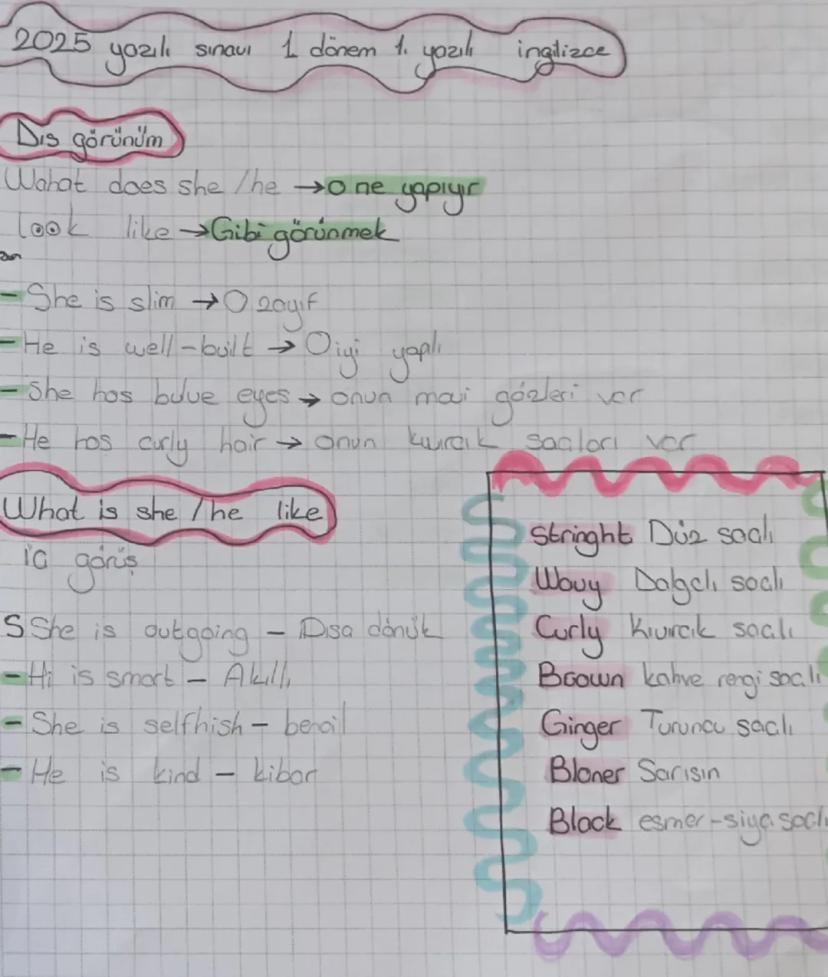 2025 yazılı sınavı 1 dönem 1. yazılı ingilizce
Dıs görünüm
Wahat does she / he → o ne yapıyır
look like → Gibi görünmek
- She is slim → O zayıf
- He is well-built → O iyi yapılı
- She has bulue eyes → onun mavi gözleri var
- He has curly hair → onun kıvırcık saçları var
What is she / he like
iç görüş
S She is outgoing - Dısa dönük
- Hi is smart - Akıllı
- She is selfhish - bencil
- He is kind - kibar
Stringht Düz saçlı
Wavy Dalgalı saçlı
Curly Kıvırcık saçlı
Brown kahve rengi saçlı
Ginger Turuncu saçlı
Bloner Sarısın
Black esmer-siya saçlı